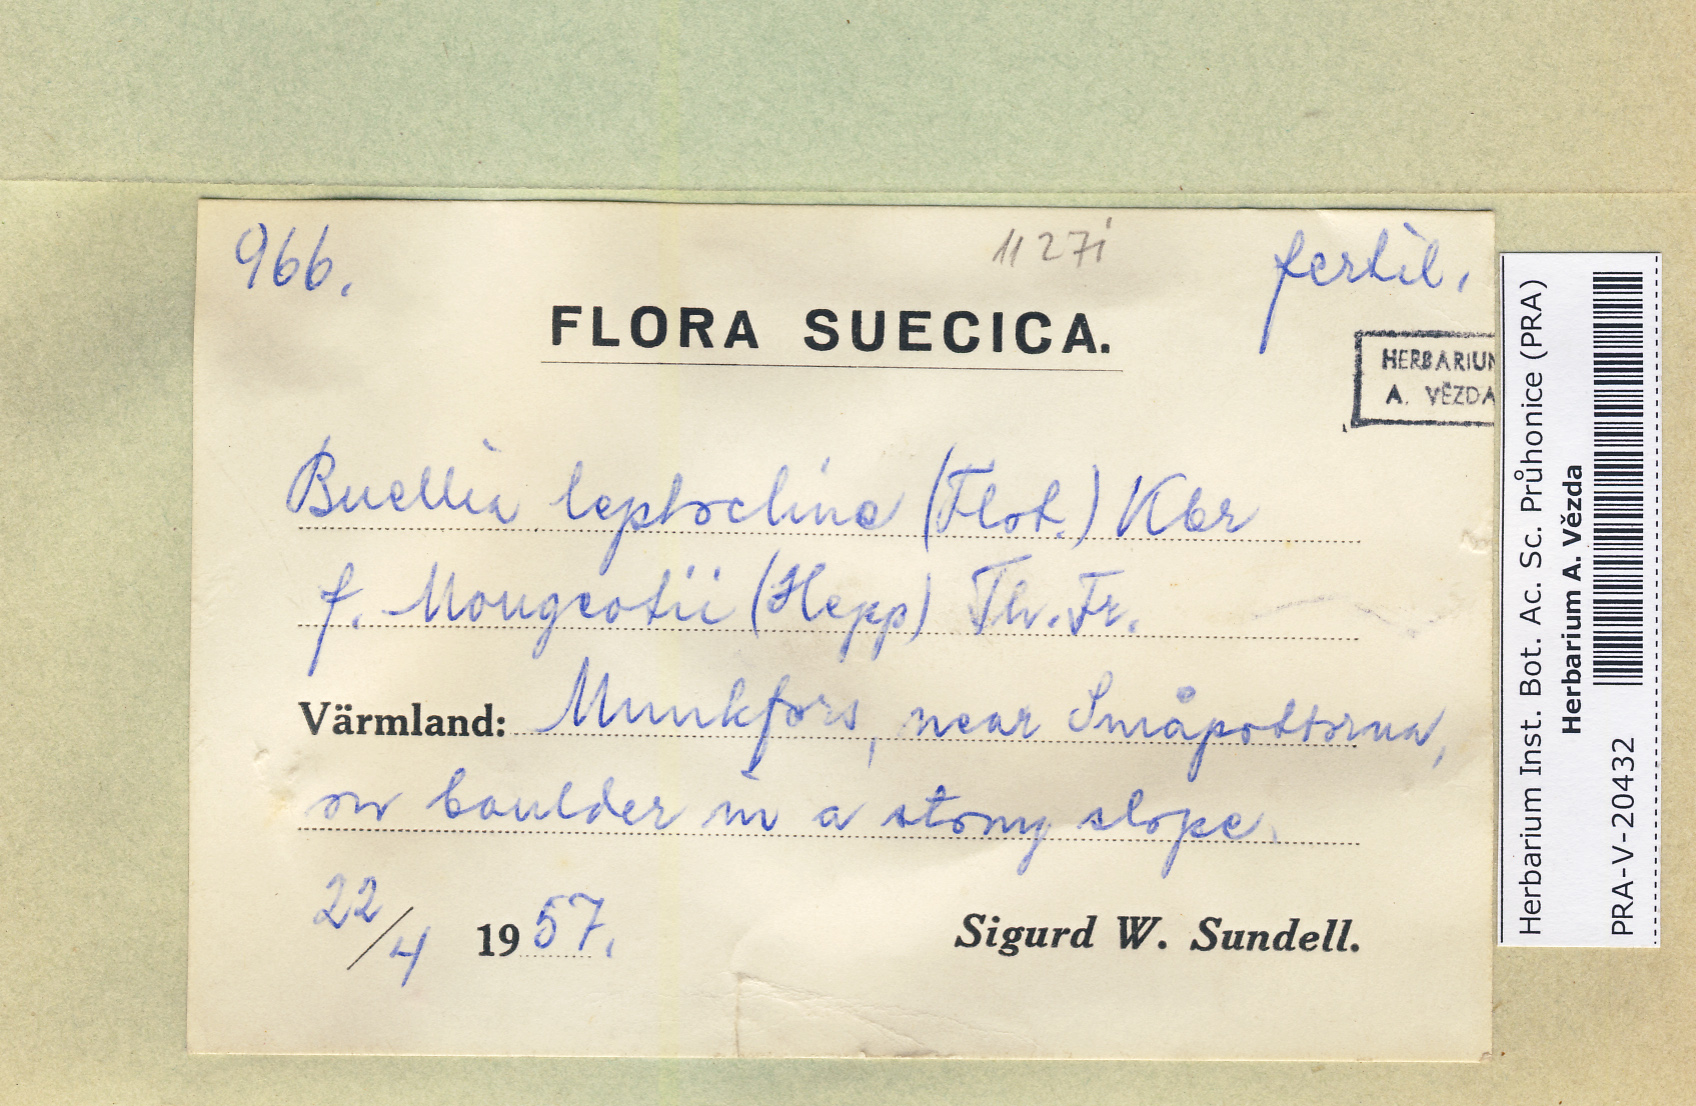 966.
1127i
fertil.
FLORA SUECICA.
HERBARIUM
A. VĚZDA
Buellia leptocline (Flot.) Kbr
f. Mougeotii (Hepp) Th. Fr.
Värmland: Munkfors, near Småpottorna,
on boulder in a stony slope.
22/4 1957.
Sigurd W. Sundell.
Herbarium Inst. Bot. Ac. Sc. Průhonice (PRA)
Herbarium A. Vězda
PRA-V-20432